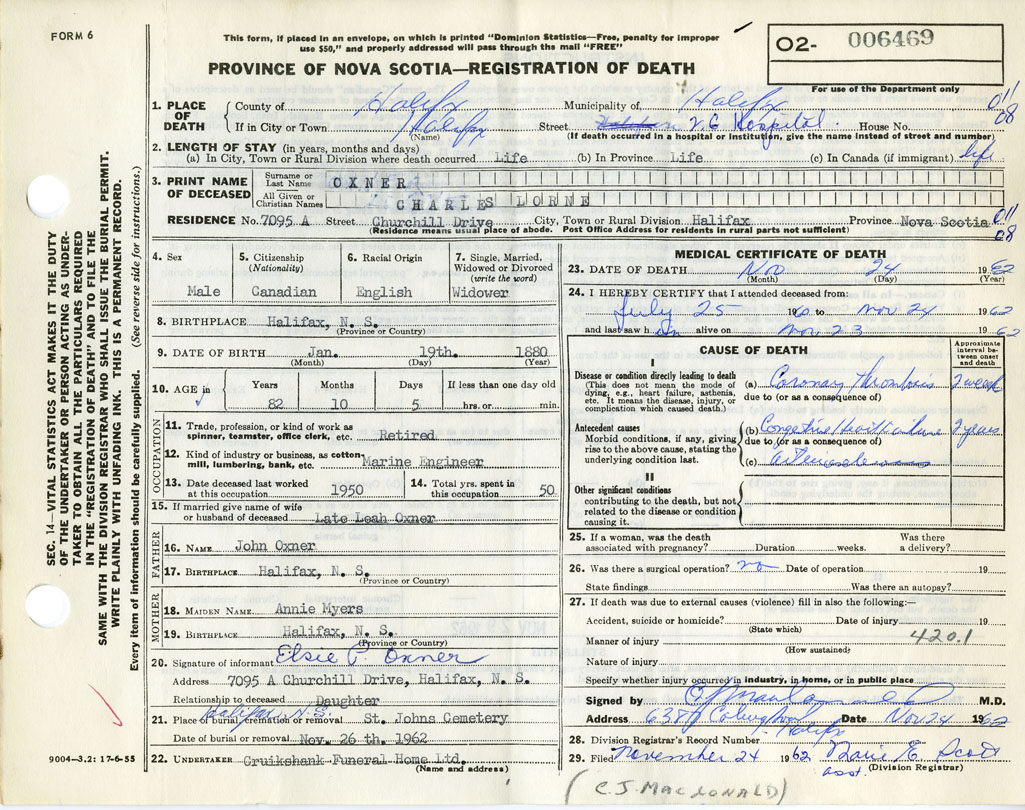 FORM 6
This form, if placed in an envelope, on which is printed "Dominion Statistics—Free, penalty for improper
use $50," and properly addressed will pass through the mail "FREE"
PROVINCE OF NOVA SCOTIA—REGISTRATION OF DEATH
O2- 006469
For use of the Department only
SEC. 14—VITAL STATISTICS ACT MAKES IT THE DUTY
OF THE UNDERTAKER OR PERSON ACTING AS UNDER-
TAKER TO OBTAIN ALL THE PARTICULARS REQUIRED
IN THE "REGISTRATION OF DEATH" AND TO FILE THE
SAME WITH THE DIVISION REGISTRAR WHO SHALL ISSUE THE BURIAL PERMIT.
WRITE PLAINLY WITH UNFADING INK. THIS IS A PERMANENT RECORD.
Every item of information should be carefully supplied. (See reverse side for instructions.)
1. PLACE OF DEATH
County of Halifax Municipality of Halifax 011
08
If in City or Town Halifax Street V G Hospital House No.
(Name) (If death occurred in a hospital or institution, give the name instead of street and number)
2. LENGTH OF STAY (in years, months and days)
(a) In City, Town or Rural Division where death occurred Life (b) In Province Life (c) In Canada (if immigrant) life
3. PRINT NAME OF DECEASED
Surname or Last Name OXNER
All Given or Christian Names CHARLES LORNE
RESIDENCE No. 7095 A Street Churchill Drive City, Town or Rural Division Halifax Province Nova Scotia 011
08
(Residence means usual place of abode. Post Office Address for residents in rural parts not sufficient)
4. Sex
Male
5. Citizenship (Nationality)
Canadian
6. Racial Origin
English
7. Single, Married, Widowed or Divorced (write the word)
Widower
8. BIRTHPLACE Halifax, N. S.
(Province or Country)
9. DATE OF BIRTH Jan. 19th. 1880
(Month) (Day) (Year)
10. AGE in Years Months Days If less than one day old
82 10 5 hrs. or min.
OCCUPATION
11. Trade, profession, or kind of work as
spinner, teamster, office clerk, etc. Retired
12. Kind of industry or business, as cotton-
mill, lumbering, bank, etc. Marine Engineer
13. Date deceased last worked
at this occupation 1950
14. Total yrs. spent in
this occupation 50
15. If married give name of wife
or husband of deceased Late Leah Oxner
FATHER
16. NAME John Oxner
17. BIRTHPLACE Halifax, N. S.
(Province or Country)
MOTHER
18. MAIDEN NAME. Annie Myers
19. BIRTHPLACE Halifax, N. S.
(Province or Country)
20. Signature of informant Elsie P. Oxner
Address 7095 A Churchill Drive, Halifax, N. S.
Relationship to deceased Daughter
Halifax, N.S.
21. Place of burial, cremation or removal St. Johns Cemetery
Date of burial or removal Nov. 26 th. 1962
22. UNDERTAKER Cruikshank Funeral Home Ltd.
(Name and address)
9004—3.2: 17-6-55
MEDICAL CERTIFICATE OF DEATH
23. DATE OF DEATH Nov 24 1962
(Month) (Day) (Year)
24. I HEREBY CERTIFY that I attended deceased from:
July 25 1960 to Nov 24 1962
and last saw h im alive on Nov 23 1962
CAUSE OF DEATH
Approximate interval between onset and death
I
Disease or condition directly leading to death
(This does not mean the mode of
dying, e.g., heart failure, asthenia,
etc. It means the disease, injury, or
complication which caused death.)
(a) Coronary Thrombosis 2 weeks
due to (or as a consequence of)
Antecedent causes
Morbid conditions, if any, giving
rise to the above cause, stating the
underlying condition last.
(b) Congestive Heart Failure 2 years
due to (or as a consequence of)
(c)
II
Other significant conditions
contributing to the death, but not
related to the disease or condition
causing it.
25. If a woman, was the death
associated with pregnancy? Duration weeks. Was there
a delivery?
26. Was there a surgical operation? no Date of operation 19
State findings Was there an autopsy?
27. If death was due to external causes (violence) fill in also the following:—
Accident, suicide or homicide? Date of injury 19
(State which)
Manner of injury 420.1
(How sustained)
Nature of injury
Specify whether injury occurred in industry, in home, or in public place
Signed by M.D.
Address 6389 Coburg Road Halifax Date Nov 24 1962
28. Division Registrar's Record Number
29. Filed November 24 1962 Marie E. Scott
asst. (Division Registrar)
(C.J. MACDONALD)